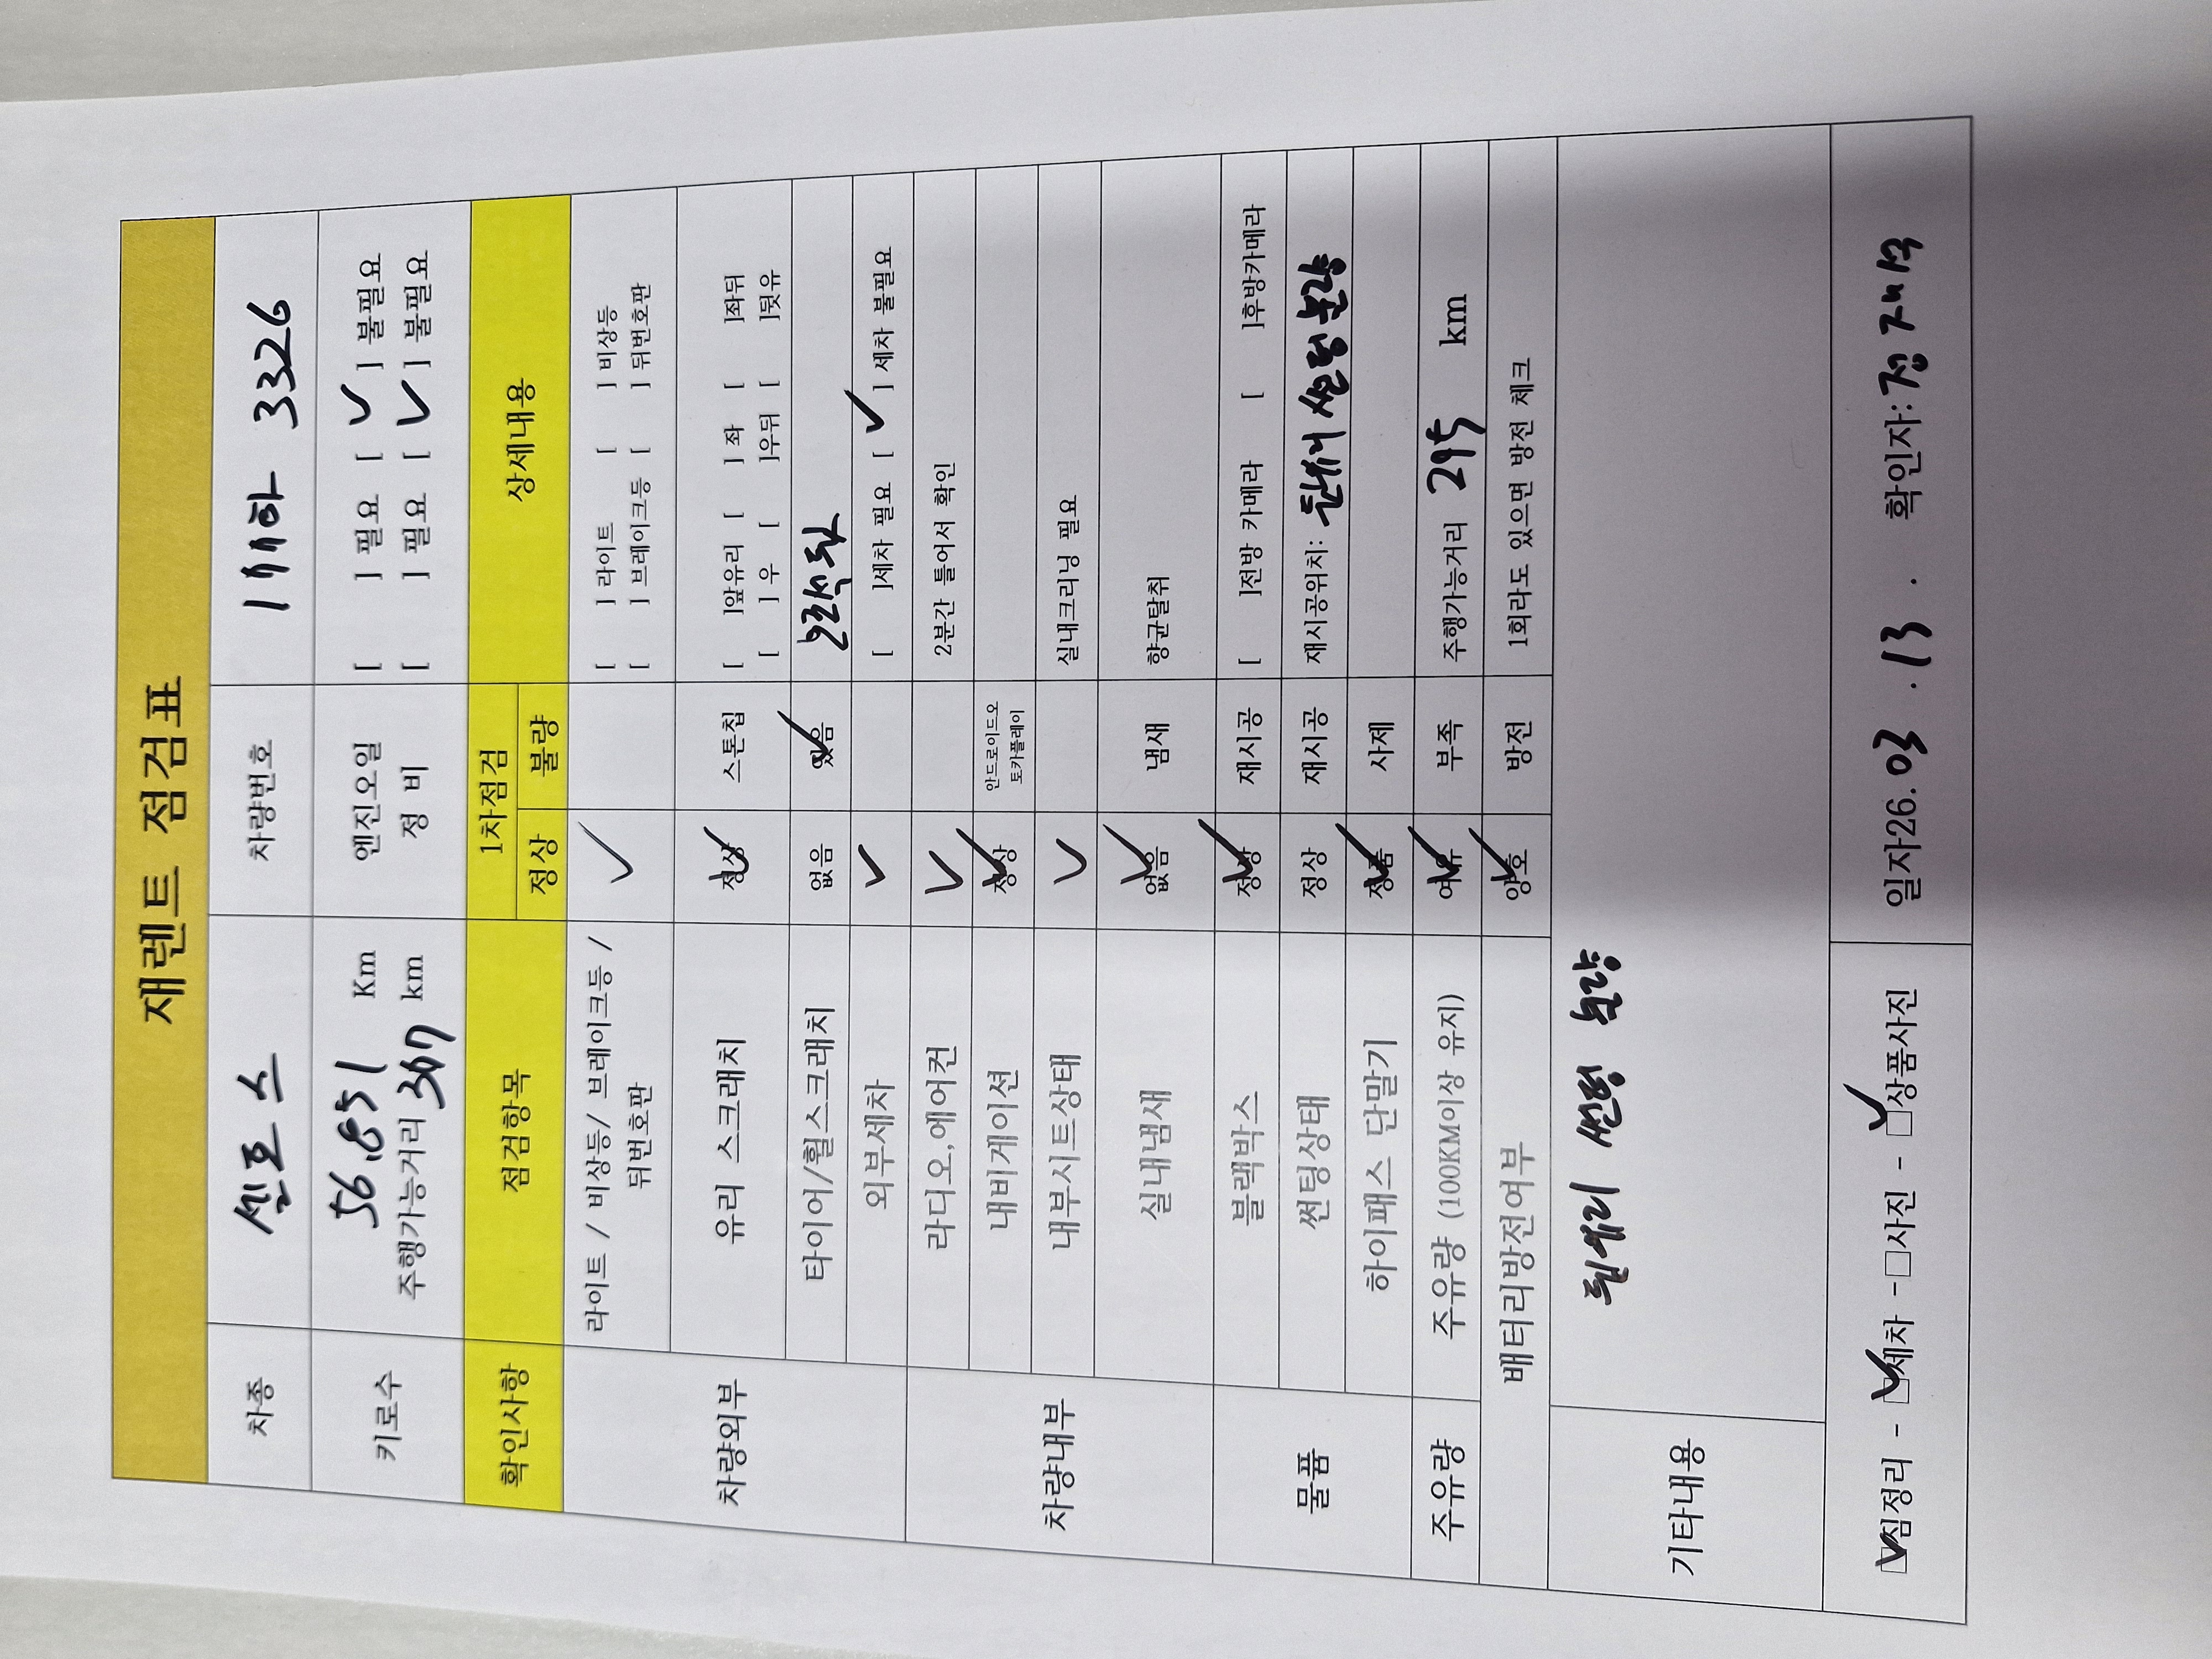 재렌트 점검표
차종 셀토스 차량번호 1111하 3326
키로수 56,851 Km 엔진오일 [ ] 필요 [ ✓ ] 불필요
주행가능거리 307 km 정 비 [ ] 필요 [ ✓ ] 불필요
확인사항 점검항목 1차점검 상세내용
정상 불량
차량외부 라이트 / 비상등/ 브레이크등 / ✓ [ ] 라이트 [ ] 비상등
뒤번호판 [ ] 브레이크등 [ ] 뒤번호판
유리 스크래치 정상 ✓ 스톤칩 [ ]앞유리 [ ] 좌 [ ]좌뒤
[ ] 우 [ ]우뒤 [ ]뒷유
타이어/휠스크래치 없음 있음 ✓
외부세차 ✓ [ ]세차 필요 [ ✓ ] 세차 불필요
차량내부 라디오,에어컨 ✓ 2분간 틀어서 확인
내비게이션 정상 ✓ 안드로이드오
토카플레이
내부시트상태 ✓ 실내크리닝 필요
실내냄새 없음 ✓ 냄새 향균탈취
물품 블랙박스 정상 ✓ 재시공 [ ]전방 카메라 [ ]후방카메라
썬팅상태 정상 재시공 재시공위치: 썬팅불량
하이패스 단말기 정품 ✓ 사제
주유량 주유량 (100KM이상 유지) 여유 ✓ 부족 주행가능거리 295 km
배터리방전여부 양호 ✓ 방전 1회라도 있으면 방전 체크
기타내용 뒷유리 썬팅 불량
☑짐정리 - ☑세차 -□사진 - ☑상품사진 일자26. 03 . 13 . 확인자: 정재석